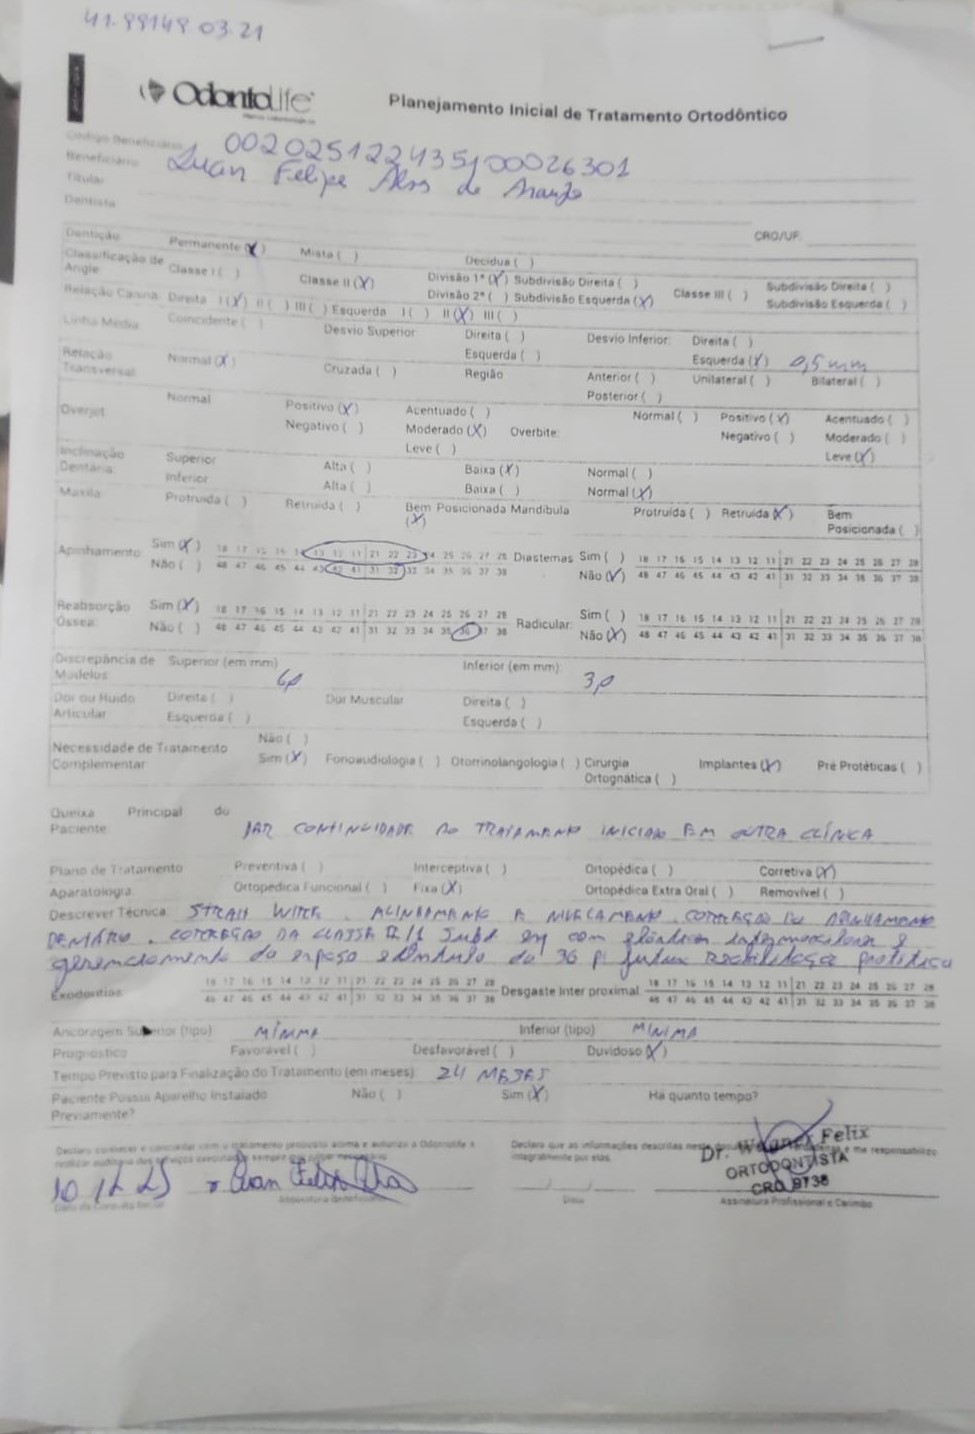 41.99149.03.21
OdontoLife
Planejamento Inicial de Tratamento Ortodôntico
Código Beneficiário 00202512243500026301
Beneficiário Luan Felipe Alvs de Araujo
Titular
Dentista
CRO/UF
Dentição Permanente (X) Mista ( ) Decídua ( )
Classificação de Angle Classe I ( ) Classe II (X) Divisão 1ª (X) Subdivisão Direita ( ) Classe III ( ) Subdivisão Direita ( )
Divisão 2ª ( ) Subdivisão Esquerda (X) Subdivisão Esquerda ( )
Relação Canina Direita I (X) II ( ) III ( ) Esquerda I ( ) II (X) III ( )
Linha Média Coincidente ( ) Desvio Superior Direita ( ) Desvio Inferior: Direita ( )
Esquerda ( ) Esquerda (X) 0,5 mm
Relação Transversal Normal (X) Cruzada ( ) Região Anterior ( ) Unilateral ( ) Bilateral ( )
Posterior ( )
Overjet Normal Positivo (X) Acentuado ( ) Overbite: Normal ( ) Positivo (X) Acentuado ( )
Negativo ( ) Moderado (X) Negativo ( ) Moderado ( )
Leve ( ) Leve (X)
Inclinação Dentária Superior Alta ( ) Baixa (X) Normal ( )
Inferior Alta ( ) Baixa ( ) Normal (X)
Maxila Protruída ( ) Retruída ( ) Bem Posicionada (X) Mandíbula Protruída ( ) Retruída (X) Bem Posicionada ( )
Apinhamento Sim (X) 18 17 16 15 14 13 12 11 21 22 23 24 25 26 27 28 Diastemas Sim ( ) 18 17 16 15 14 13 12 11 21 22 23 24 25 26 27 28
Não ( ) 48 47 46 45 44 43 42 41 31 32 33 34 35 36 37 38 Não (X) 48 47 46 45 44 43 42 41 31 32 33 34 35 36 37 38
Reabsorção Óssea: Sim (X) 18 17 16 15 14 13 12 11 21 22 23 24 25 26 27 28 Radicular: Sim ( ) 18 17 16 15 14 13 12 11 21 22 23 24 25 26 27 28
Não ( ) 48 47 46 45 44 43 42 41 31 32 33 34 35 36 37 38 Não (X) 48 47 46 45 44 43 42 41 31 32 33 34 35 36 37 38
Discrepância de Modelos Superior (em mm) Inferior (em mm):
Dor ou Ruído Articular Direita ( ) Dor Muscular Direita ( )
Esquerda ( ) Esquerda ( )
Necessidade de Tratamento Complementar Não ( )
Sim (X) Fonoaudiologia ( ) Otorrinolangologia ( ) Cirurgia Ortognática ( ) Implantes (X) Pré Protéticas ( )
Queixa Principal do Paciente: DAR CONTINUIDADE AO TRATAMENTO INICIADO EM OUTRA CLÍNICA
Plano de Tratamento Preventiva ( ) Interceptiva ( ) Ortopédica ( ) Corretiva (X)
Aparatologia Ortopédica Funcional ( ) Fixa (X) Ortopédica Extra Oral ( ) Removível ( )
Descrever Técnica ALINHAMENTO E NIVELAMENTO. CORREÇÃO DO APINHAMENTO
DENTÁRIO. CORREÇÃO DA CLASSE II/1 Subd esq com elásticos intermaxilares e
gerenciamento do espaço edêntulo do 36 p/ futura reabilitação protética
Exodontias: 18 17 16 15 14 13 12 11 21 22 23 24 25 26 27 28 Desgaste Inter proximal: 18 17 16 15 14 13 12 11 21 22 23 24 25 26 27 28
48 47 46 45 44 43 42 41 31 32 33 34 35 36 37 38 48 47 46 45 44 43 42 41 31 32 33 34 35 36 37 38
Ancoragem Superior (tipo) MÍNIMA Inferior (tipo) MÍNIMA
Prognóstico Favorável ( ) Desfavorável ( ) Duvidoso (X)
Tempo Previsto para Finalização do Tratamento (em meses) 24 MESES
Paciente Possui Aparelho Instalado Previamente? Não ( ) Sim (X) Há quanto tempo?
Declaro conhecer e concordar com o tratamento proposto acima e autorizo a Odontolife a
realizar auditoria dos serviços executados sempre que julgar necessário
Declaro que as informações descritas neste e me responsabilizo
integralmente por elas.
Dr. Felix
ORTODONTISTA
CRO 9738
10 12 25 Luan Felipe
Data da Consulta Inicial Assinatura Beneficiário Data Assinatura Profissional e Carimbo